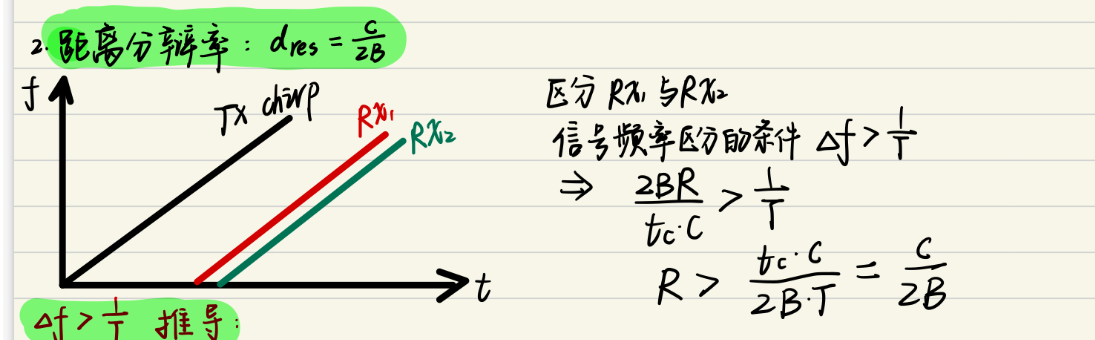 2. 距离分辨率: d_res = c/2B
f
TX chirp
Rx₁
Rx₂
t
区分 Rx₁ 与 Rx₂
信号频率区分的条件 Δf > 1/T
⇒ 2BR/(t_c·C) > 1/T
R > t_c·C/(2B·T) = C/2B
Δf > 1/T 推导: